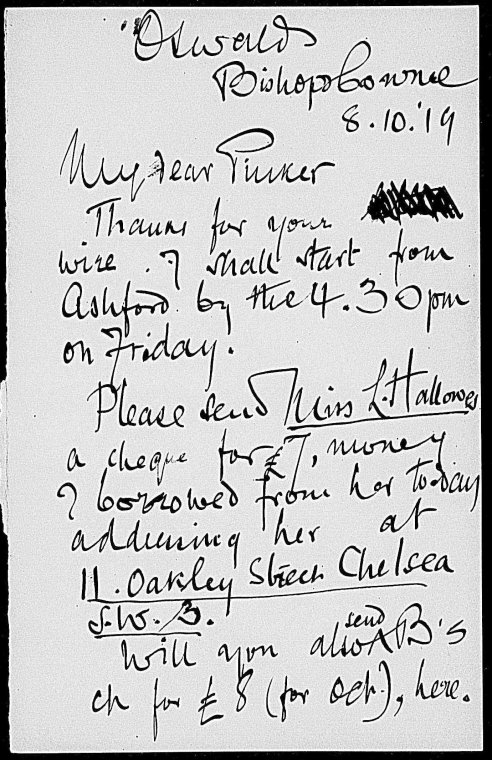 Oswalds
Bishopsbourne
8.10.'19
My dear Pinker
Thanks for your
wire. I shall start from
Ashford by the 4.30pm
on Friday.
Please send Miss L. Hallowes
a cheque for £7, money
I borrowed from her to-day
addressing her at
11. Oakley Street Chelsea
S.W. 3.
Will you also send B's
ch for £8 (for Oct.), here.